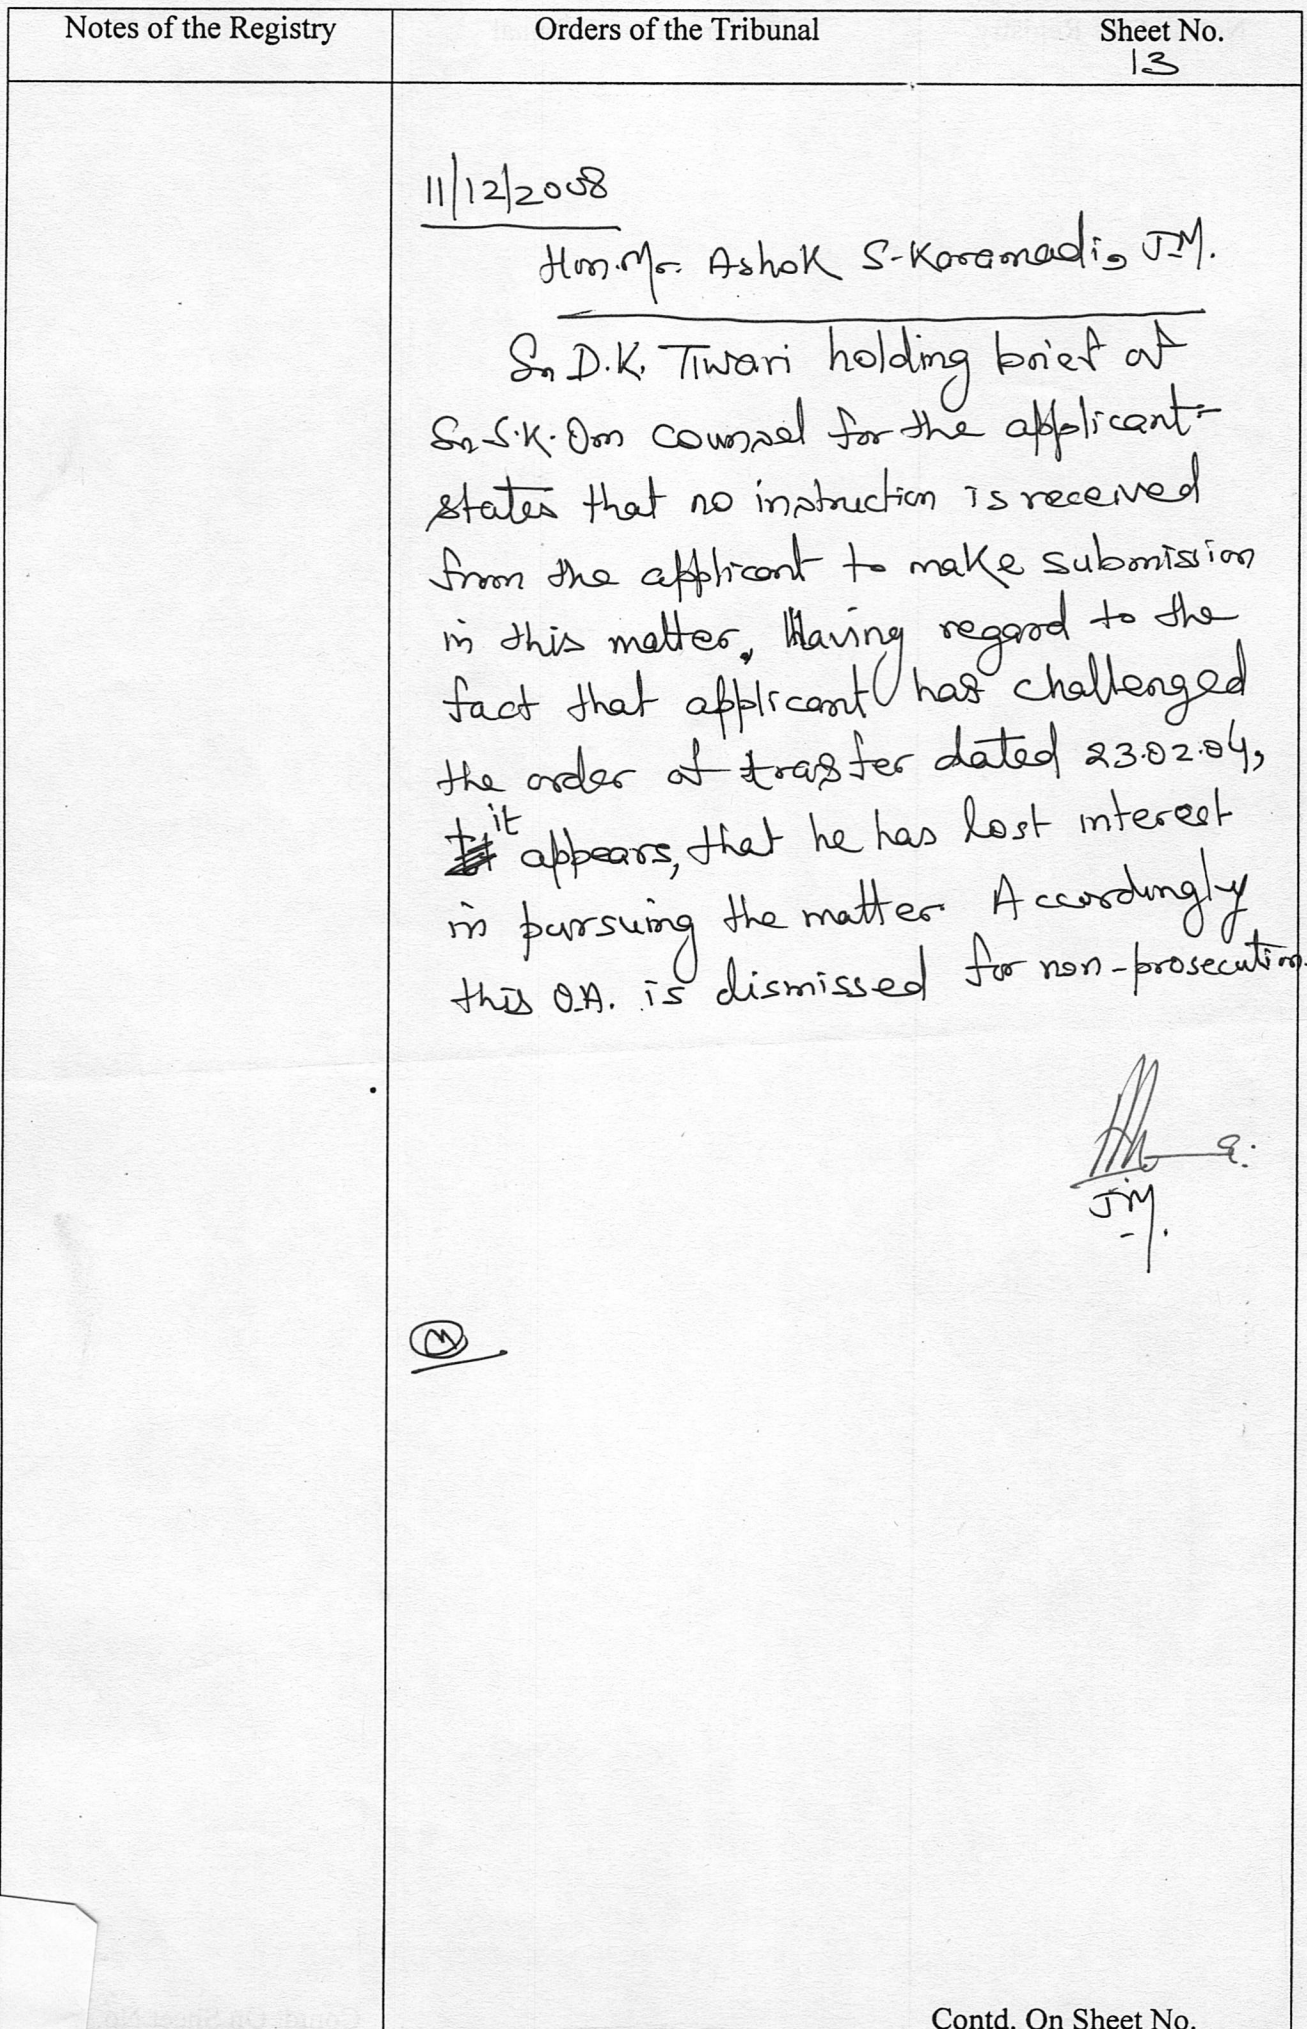 Notes of the Registry Orders of the Tribunal Sheet No.
13
11/12/2008
Hon. Mr. Ashok S. Karamadi, J.M.
Sri D.K. Tiwari holding brief of
Sri S.K. Om counsel for the applicant
states that no instruction is received
from the applicant to make submission
in this matter. Having regard to the
fact that applicant has challenged
the order of trasfer dated 23.02.04,
it appears, that he has lost interest
in pursuing the matter. Accordingly
this O.A. is dismissed for non-prosecution.
J.M.
Contd. On Sheet No.